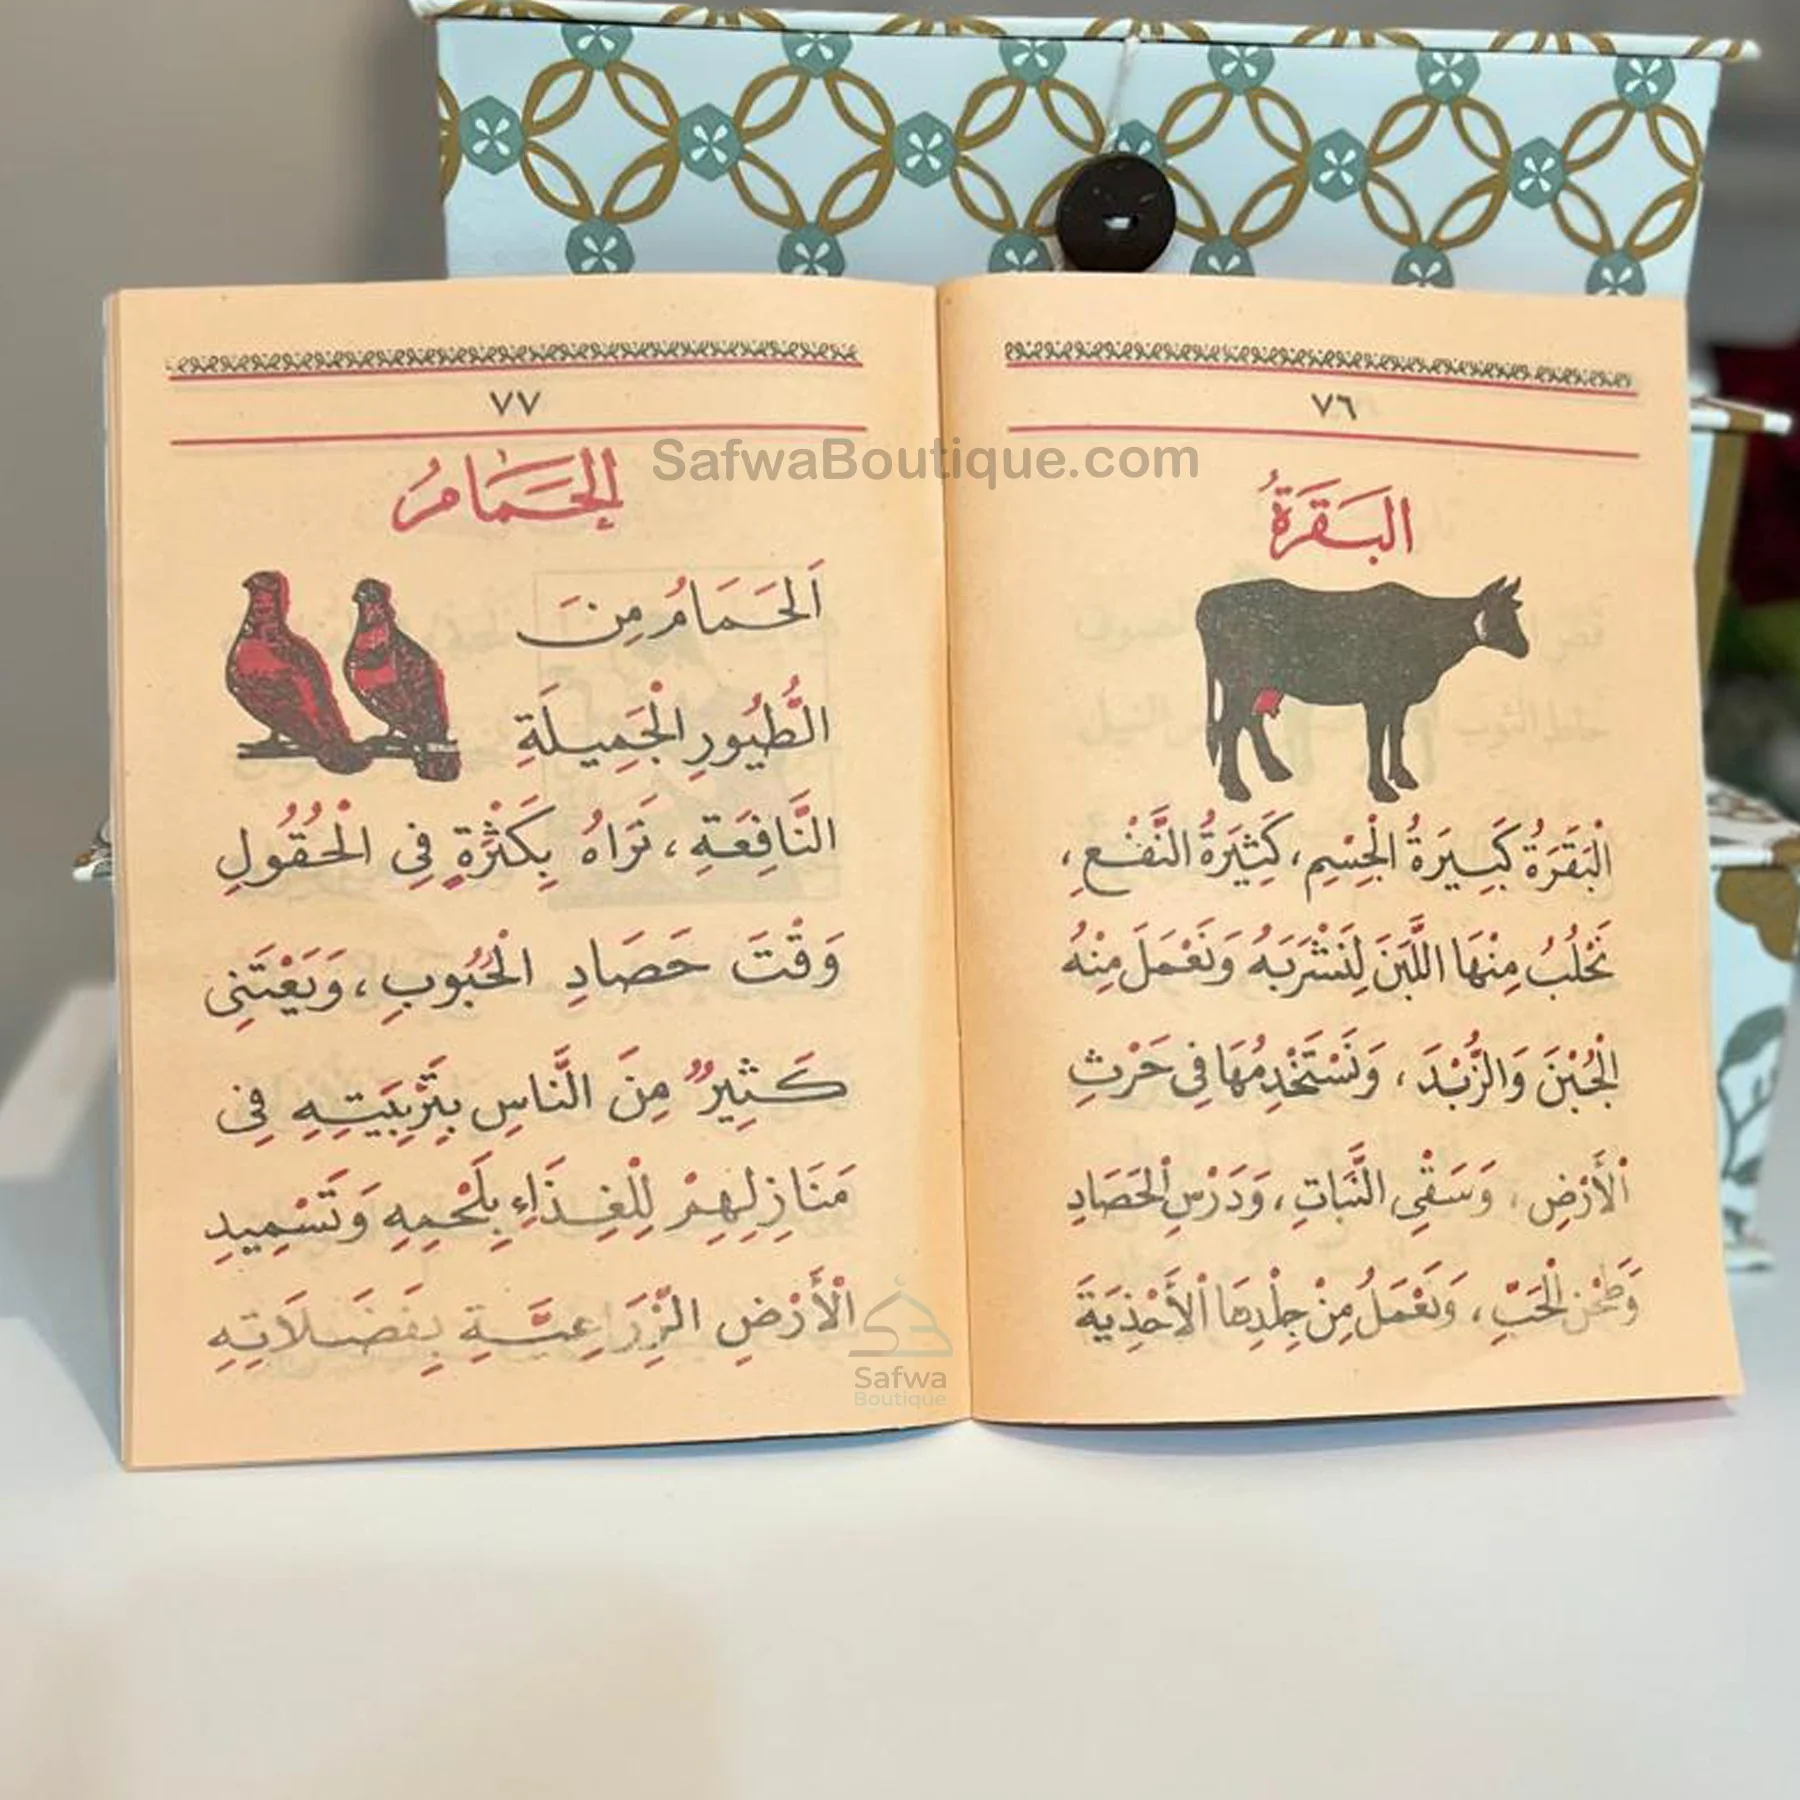 SafwaBoutique.com
٧٦
البَقَرَةُ
الْبَقَرَةُ كَبِيرَةُ الْجِسْمِ، كَثِيرَةُ النَّفْعِ،
نَحْلُبُ مِنْهَا اللَّبَنَ لِنَشْرَبَهُ وَنَعْمَلَ مِنْهُ
الْجُبْنَ وَالزُّبْدَ، وَنَسْتَخْدِمُهَا فِي حَرْثِ
الْأَرْضِ، وَسَقْيِ النَّبَاتِ، وَدَرْسِ الْحَصَادِ
وَطَحْنِ الْحَبِّ، وَنَعْمَلُ مِنْ جِلْدِهَا الْأَحْذِيَةَ
٧٧
الحَمَامُ
اَلحَمَامُ مِنَ
الطُّيُورِ الْجَمِيلَةِ
النَّافِعَةِ، تَرَاهُ بِكَثْرَةٍ فِي الْحُقُولِ
وَقْتَ حَصَادِ الْحُبُوبِ، وَيَعْتَنِي
كَثِيرٌ مِنَ النَّاسِ بِتَرْبِيَتِهِ فِي
مَنَازِلِهِمْ لِلْغِذَاءِ بِلَحْمِهِ وَتَسْمِيدِ
الْأَرْضِ الزِّرَاعِيَّةِ بِفَضَلَاتِهِ
Safwa
Boutique